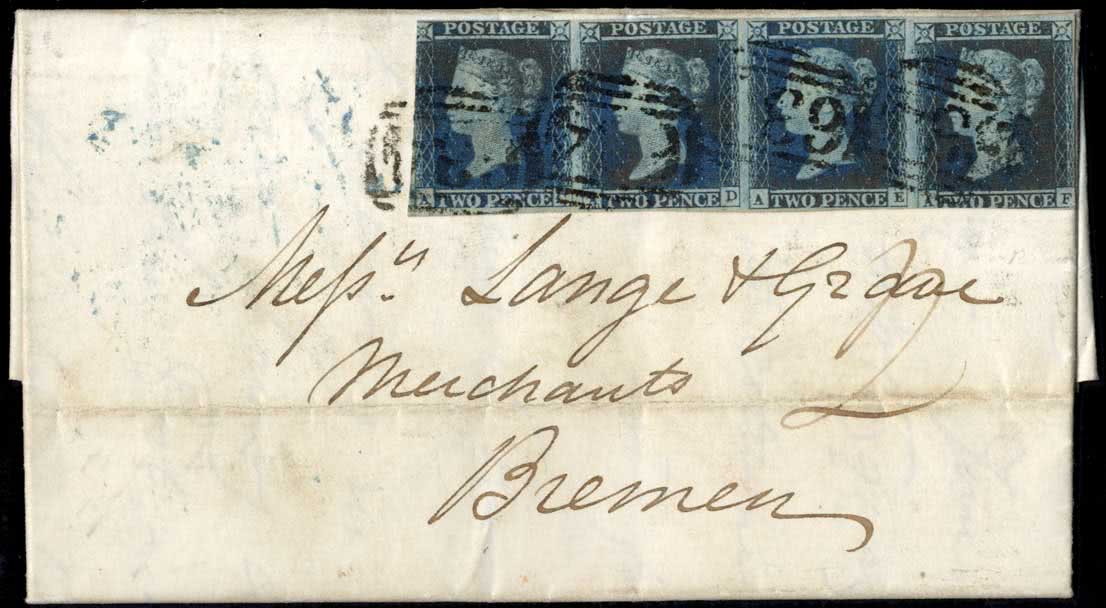 POSTAGE POSTAGE POSTAGE POSTAGE
TWO PENCE TWO PENCE TWO PENCE TWO PENCE
A D A E A F
69
Messrs. Lange &
Merchants
Bremen